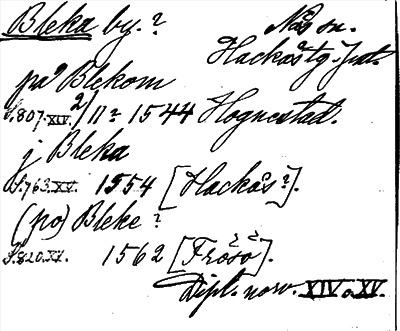 Bleka by. ?
Näs sn.
Hackås tg. Jmt.
på Blekom
S. 807. XIV. 2/11 1544 Hognestad.
j Bleka
S. 763. XV. 1554 [Hackås ?].
(po) Bleke ?
S. 820. XV. 1562 [Frösö].
Dipl. norv. XIV o. XV.